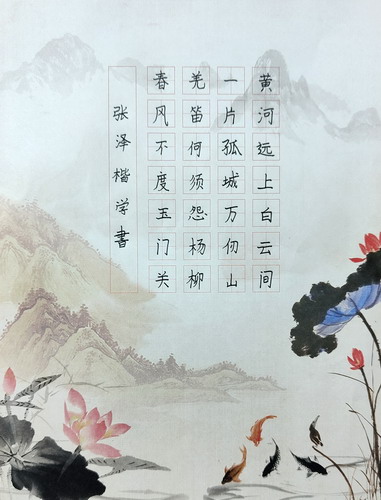 黄河远上白云间
一片孤城万仞山
羌笛何须怨杨柳
春风不度玉门关
张泽楷学書